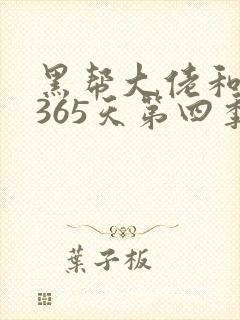 黑帮大佬和
365天第四季
葉子板